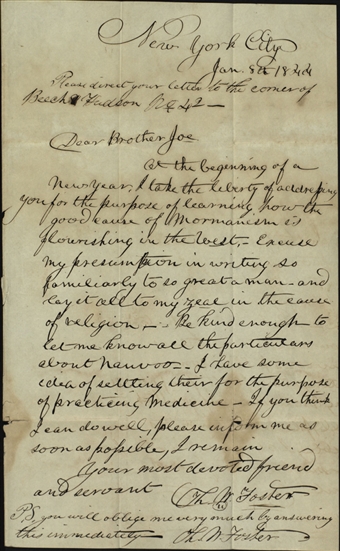 New York City
Jan. 8th 1844
Please direct your letter to the corner of
Beech & Hudson 42 —
Dear Brother Joe
At the beginning of a
New Year, I take the liberty of addressing
you for the purpose of learning how the
good cause of Mormanism is
flourishing in the West,— Excuse
my presumption in writing so
familiarly to so great a man — and
lay it all to my zeal in the cause
of religion —. Be kind enough to
let me know all the particulars
about Nauvoo — I have some
idea of settling their for the purpose
of practicing Medicine — If you think
I can do well, please inform me as
soon as possible, I remain
Your most devoted friend
and servant Th. W. Foster
PS you will oblige me very much by answering
this immediately Th. W. Foster